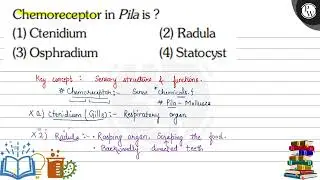 Chemoreceptor in Pila is ?
(1) Ctenidium (2) Radula
(3) Osphradium (4) Statocyst
Key concept :- Sensory structure & functions.
* Chemoreceptor:- Sense chemicals.
* Pila - Mollusca
X 1) Ctenidium (Gills):- Respiratory organ
X 2) Radula :- • Rasping organ, Scraping the food.
• Backwardly directed teeth